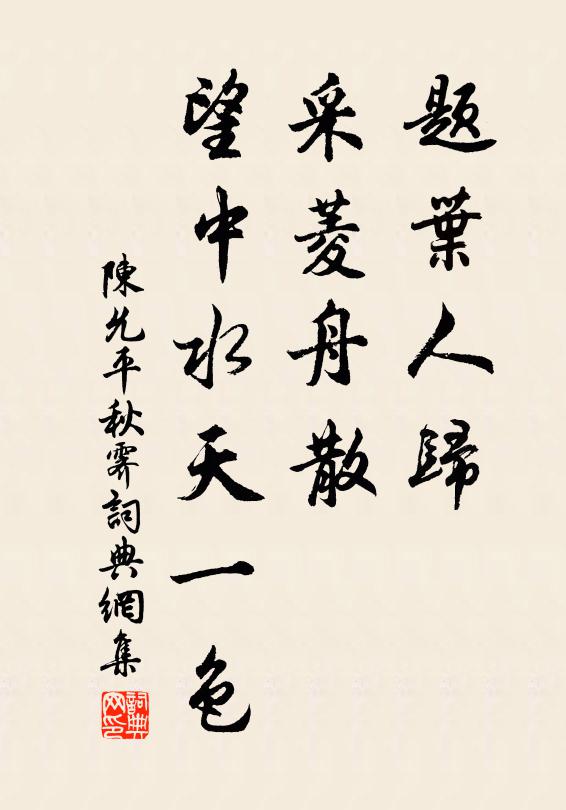 題葉人歸
采菱舟散
望中水天一色
陳允平秋霽詞典網集
詞典网印